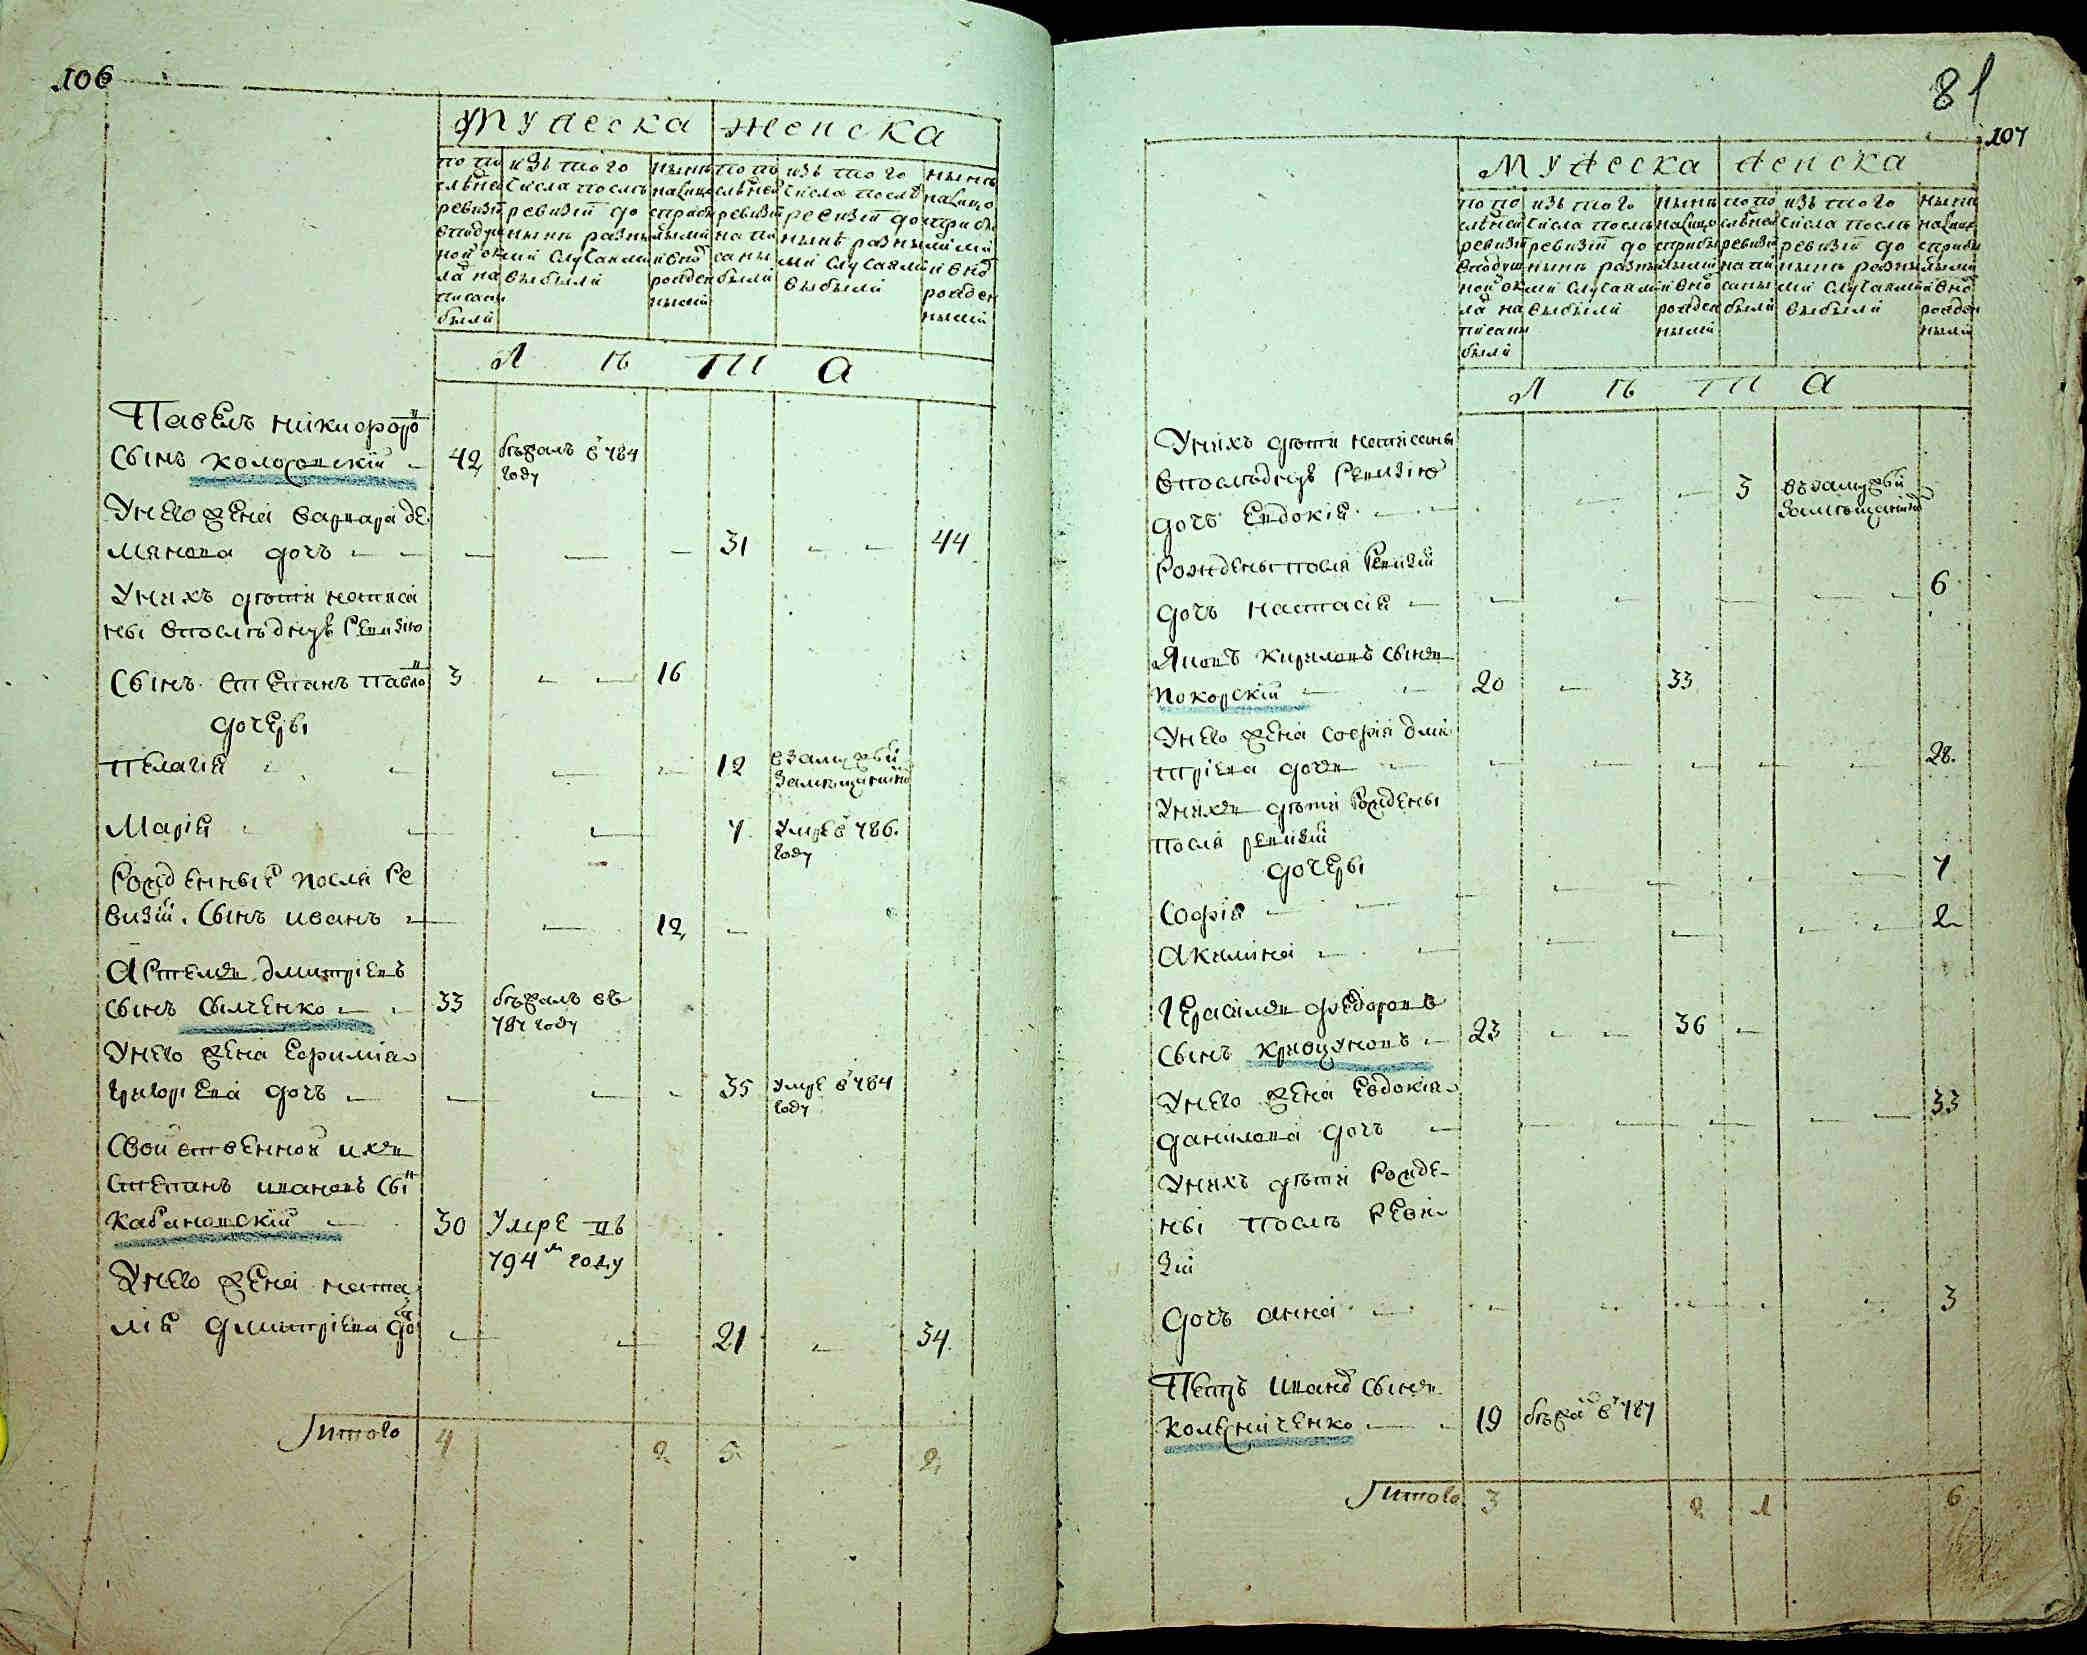 106
Мужеска женска
по по
слѣдней
ревизіи
в подуш
ной ок
ла на
писаны
были
изъ того
числа послѣ
ревизіи до
нынѣ разны
ми случаями
выбыли
нынѣ
на лицо
с прибы
лыми
и вно
рожден
ными
по по
слѣдней
ревизіи
на пи
саны
были
изъ того
числа послѣ
ревизіи до
нынѣ разны
ми случаями
выбыли
нынѣ
на лицо
с прибы
лыми
и вно
рожден
ными
Л ѣ т а
Павелъ никифоровъ
Сынъ колосовскій 42 бѣжалъ в 784
году
У него жена варвара де
мянова дочь 31 44
У нихъ дѣти написа
ны в послѣдную ревизію
Сынъ степанъ павло 3 16
дочери
пелагія 12 в замужьи
за мѣщанином
Марія 7 умре в 786
году
Рожденные посля ре
визіи. Сынъ иванъ 12
Артемъ дмитріевъ
сынъ 33 бѣжалъ въ
787 году
У него жена Ефимія
григоріева дочь 35 умре в 784
году
Свойственной ихъ
Степанъ ивановъ сы
Кабановскій 30 Умре въ
794 м году
У него жена ната
лія дмитріева до 21 34
Итого 4 2 5 2
81
107
Мужеска женска
по по
слѣдней
ревизіи
в подуш
ной ок
ла на
писаны
были
изъ того
числа послѣ
ревизіи до
нынѣ разны
ми случаями
выбыли
нынѣ
на лицо
с прибы
лыми
и вно
рожден
ными
по по
слѣдней
ревизіи
на пи
саны
были
изъ того
числа послѣ
ревизіи до
нынѣ разны
ми случаями
выбыли
нынѣ
на лицо
с прибы
лыми
и вно
рожден
ными
Л ѣ т а
У нихъ дѣти написаны
в послѣднуѣ ревизію
дочь Евдокія 3 въ замужьи
за мѣщанином
Рождены посля ревизіи
дочь настасія 6
Яковъ кириловъ сынъ
Покорскій 20 33
У него жена софія дми
тріева дочъ 28
У нихъ дѣти рождены
посля ревизіи
дочери
Софія 7
Акилина 2
Герасимъ федоровъ
Сынъ кравцуновъ 23 36
У него жена Евдокія
данилова дочь 33
У нихъ дѣти рожде
ны послѣ реви
зіи
дочь анна 3
Петръ иванов сынъ
Колесниченко 19 бѣжа в 787
Итого 3 2 1 6